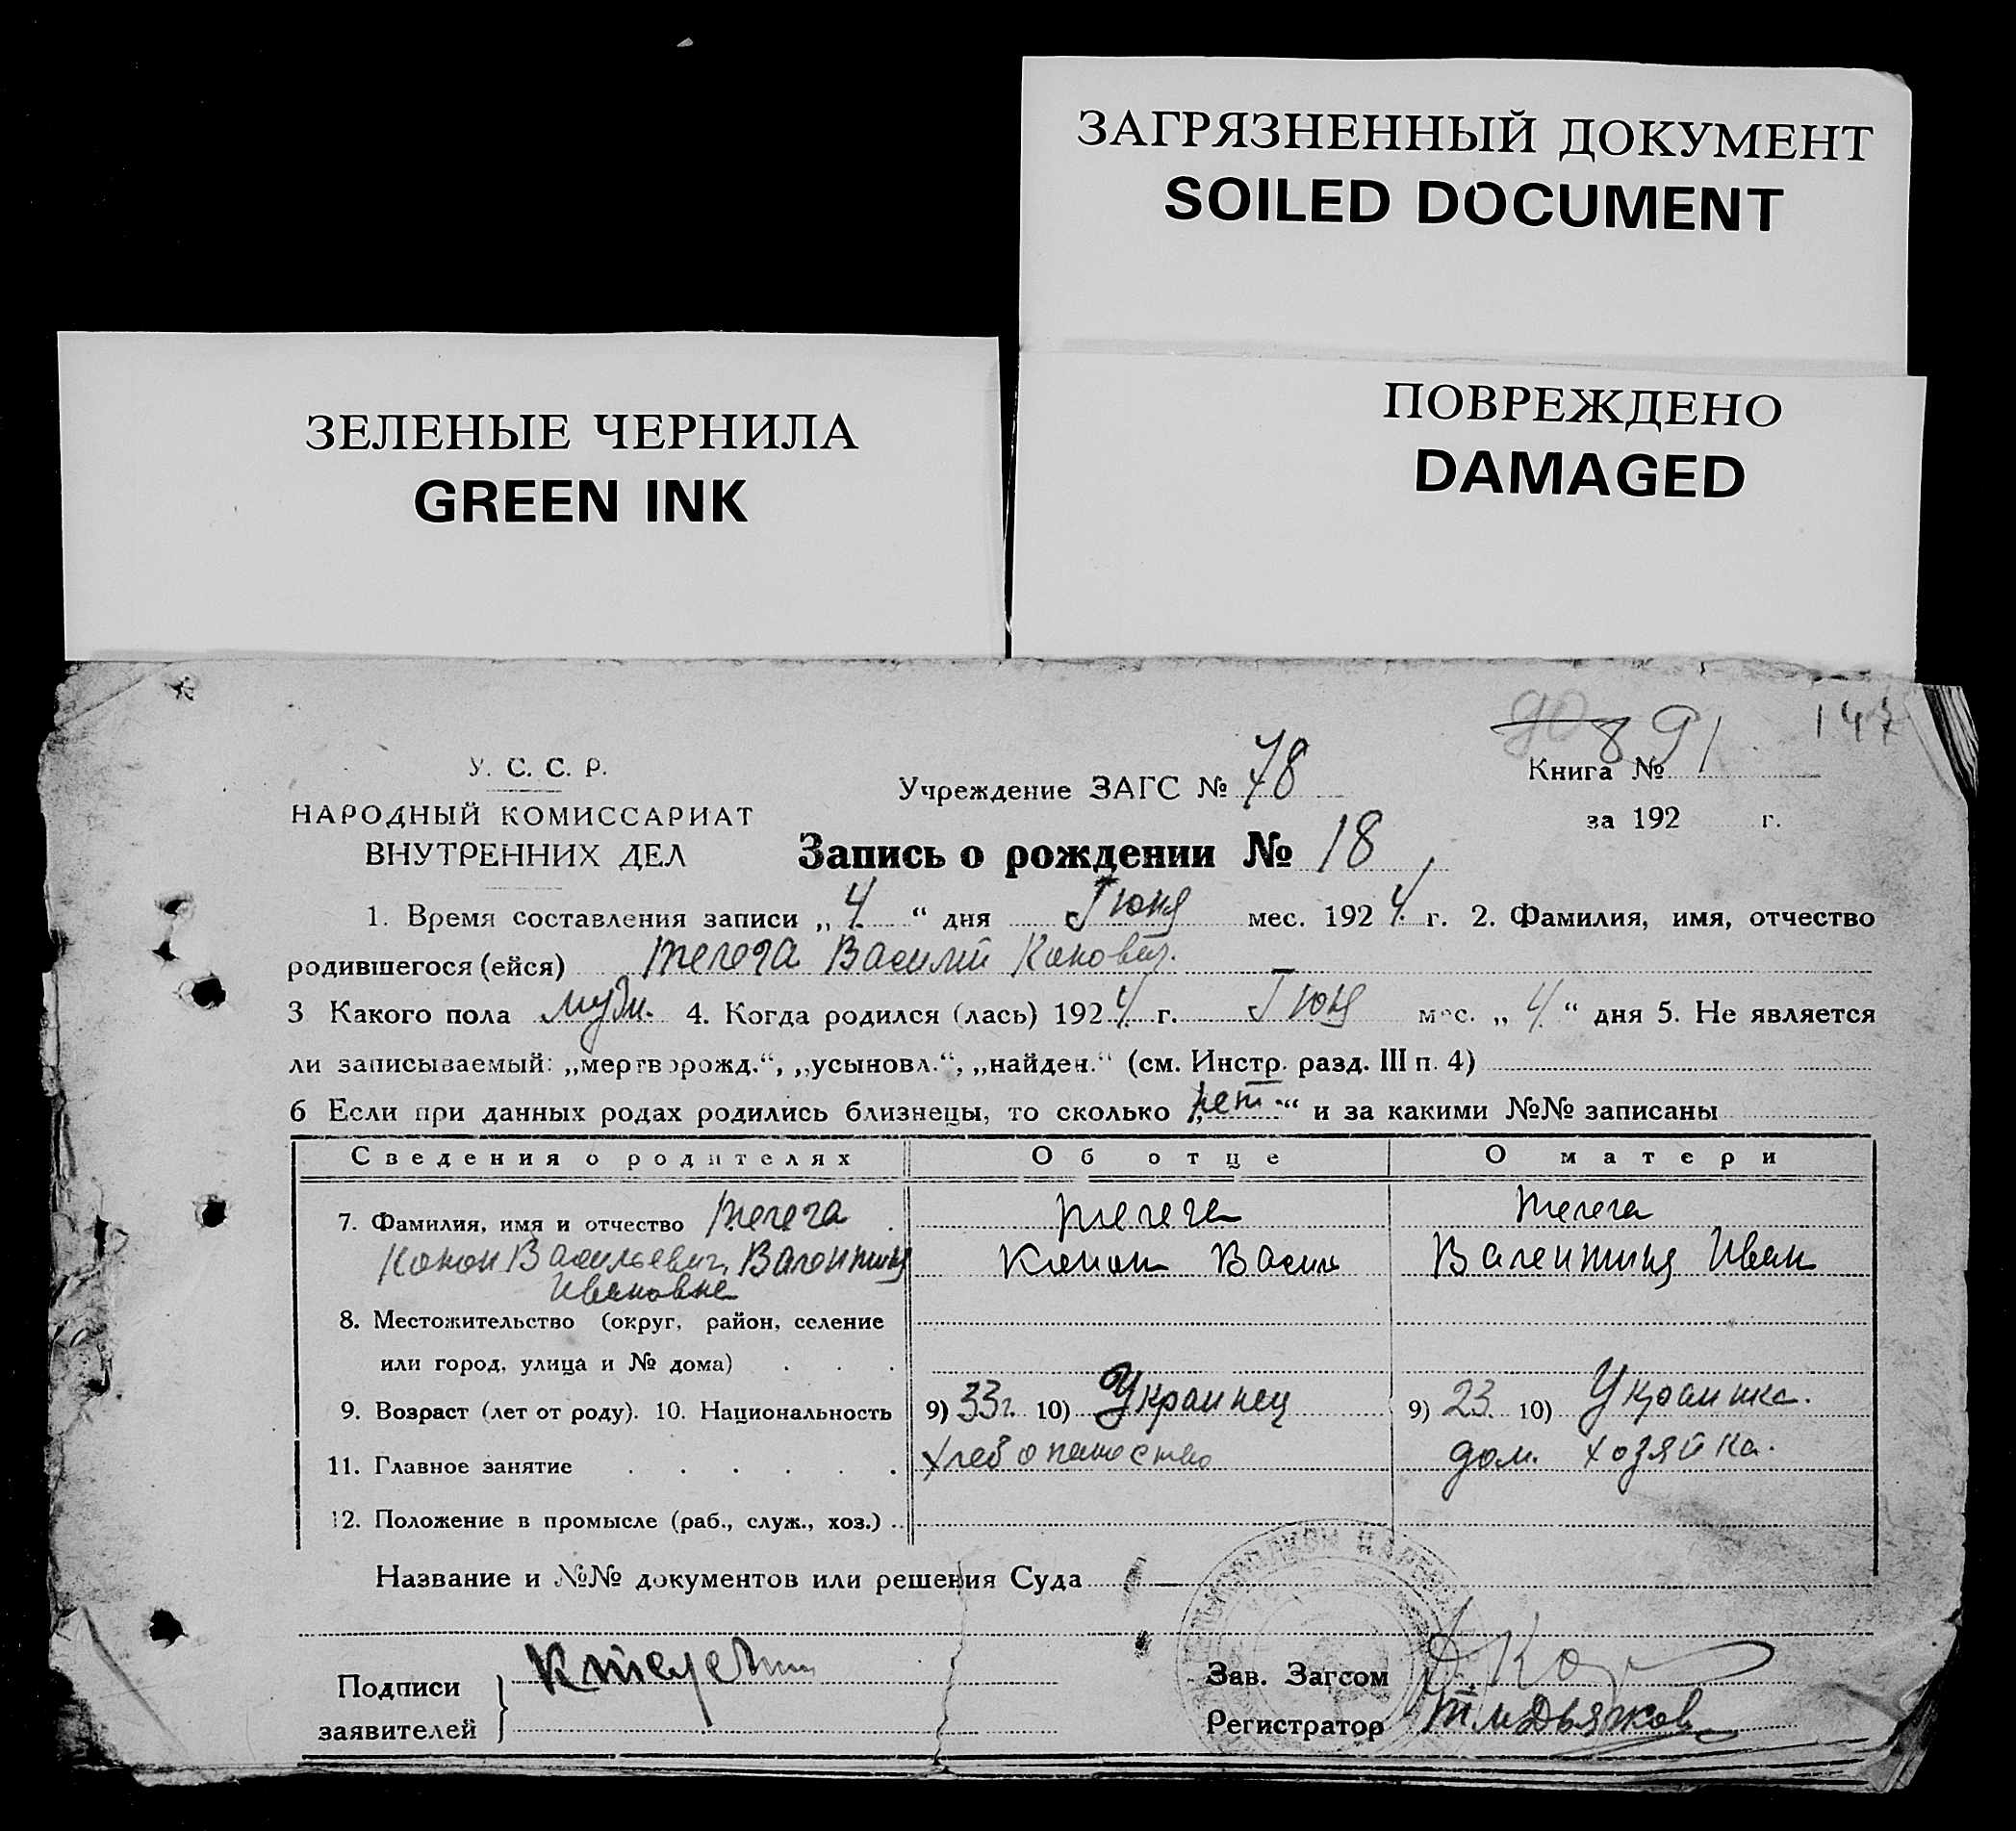 ЗАГРЯЗНЕННЫЙ ДОКУМЕНТ
SOILED DOCUMENT
ПОВРЕЖДЕНО
DAMAGED
ЗЕЛЕНЫЕ ЧЕРНИЛА
GREEN INK
147
У. С. С. Р.
НАРОДНЫЙ КОМИССАРИАТ
ВНУТРЕННИХ ДЕЛ
Учреждение ЗАГС № 78
Книга № 91
за 192 г.
Запись о рождении № 18
1. Время составления записи „ 4 “ дня Июня мес. 1924 г. 2. Фамилия, имя, отчество
родившегося (ейся) Телега Василий Конович.
3 Какого пола муж. 4. Когда родился (лась) 1924 г. Июня мес. „ 4 “ дня 5. Не является
ли записываемый: „мертворожд.“, „усыновл.“, „найден.“ (см. Инстр. разд. III п. 4)
6 Если при данных родах родились близнецы, то сколько „нет“ и за какими №№ записаны
Сведения о родителях Об отце О матери
7. Фамилия, имя и отчество Телега Телега Телега
Конон Васильевич, Валентина Конон Васил Валентина Иван
Ивановна
8. Местожительство (округ, район, селение
или город, улица и № дома) . . .
9. Возраст (лет от роду). 10. Национальность 9) 33г. 10) Украинец 9) 23. 10) Украинка.
11. Главное занятие . . . . . . Хлебопашество дом. хозяйка.
12. Положение в промысле (раб., служ., хоз.) ..
Название и №№ документов или решения Суда
Подписи
заявителей
Зав. Загсом
Регистратор